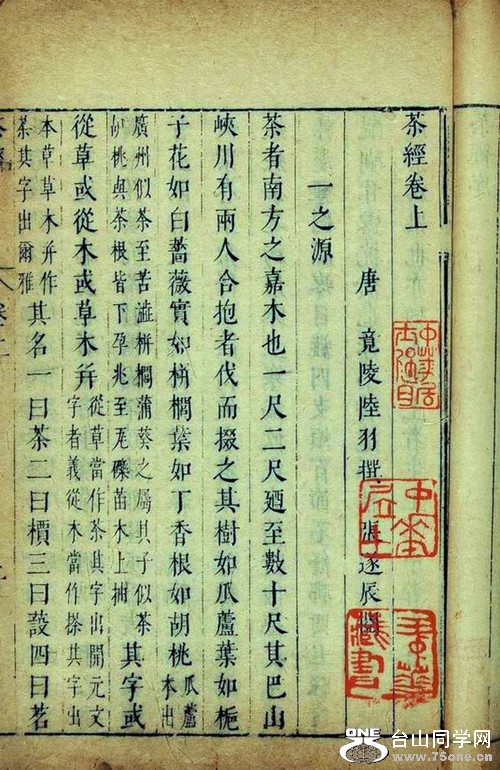 茶經卷上
唐 竟陵陸羽撰 張遂辰閱
一之源
茶者南方之嘉木也一尺二尺廼至數十尺其巴山
峽川有兩人合抱者伐而掇之其樹如瓜蘆葉如梔
子花如白薔薇實如栟櫚葉如丁香根如胡桃瓜蘆木出
廣州似茶至苦澁栟櫚蒲葵之屬其子似茶
胡桃與茶根皆下孕兆至瓦礫苗木上抽
其字或
從草或從木或草木并
從草當作茶其字出開元文
字者義從木當作搽其字出
本草草木并作
荼其字出爾雅
其名一曰茶二曰檟三曰蔎四曰茗
ONE
台山同学网
www.75one.cn